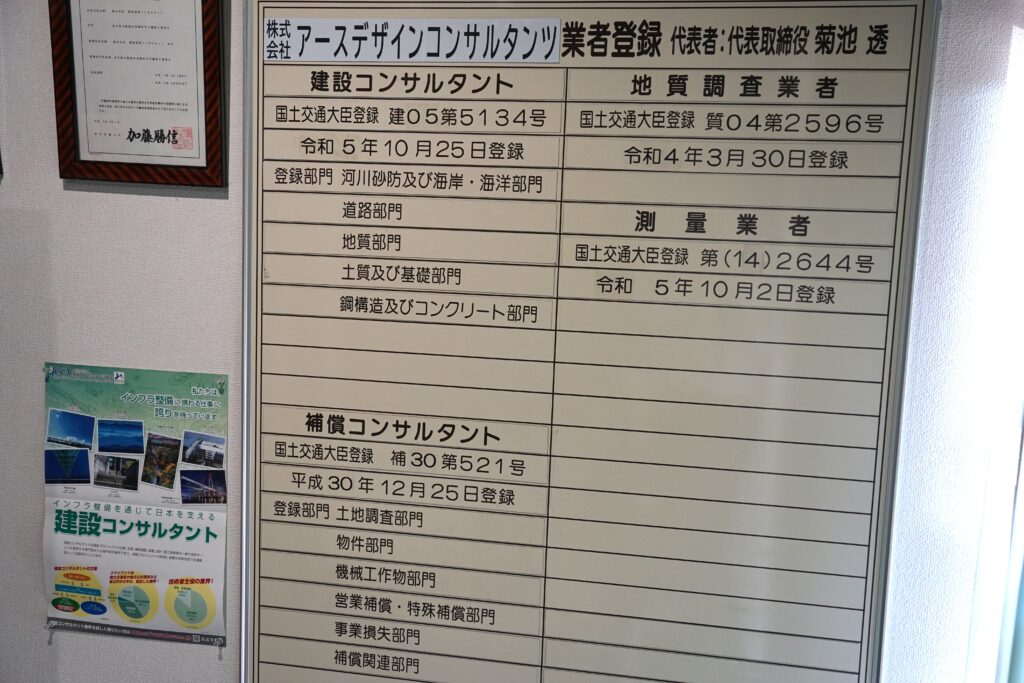 株式会社 アースデザインコンサルタンツ 業者登録 代表者：代表取締役 菊池 透
建設コンサルタント
国土交通大臣登録 建05第5134号
令和 5年10月25日登録
登録部門 河川砂防及び海岸・海洋部門
道路部門
地質部門
土質及び基礎部門
鋼構造及びコンクリート部門
補償コンサルタント
国土交通大臣登録 補30第521号
平成30年12月25日登録
登録部門 土地調査部門
物件部門
機械工作物部門
営業補償・特殊補償部門
事業損失部門
補償関連部門
地質調査業者
国土交通大臣登録 質04第2596号
令和4年3月30日登録
測量業者
国土交通大臣登録 第(14)2644号
令和 5年10月2日登録
加藤勝信
私たちは、
インフラ整備に携わる仕事に
誇りを持っています
インフラ整備を通じて日本を支える
建設コンサルタント
技術者主役の業界!